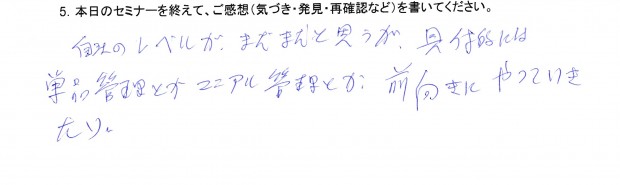 5. 本日のセミナーを終えて、ご感想(気づき・発見・再確認など)を書いてください。
自社のレベルが、まだまだと思うが、具体的には
単品管理とかマニアル管理とか、前向きにやっていき
たい。